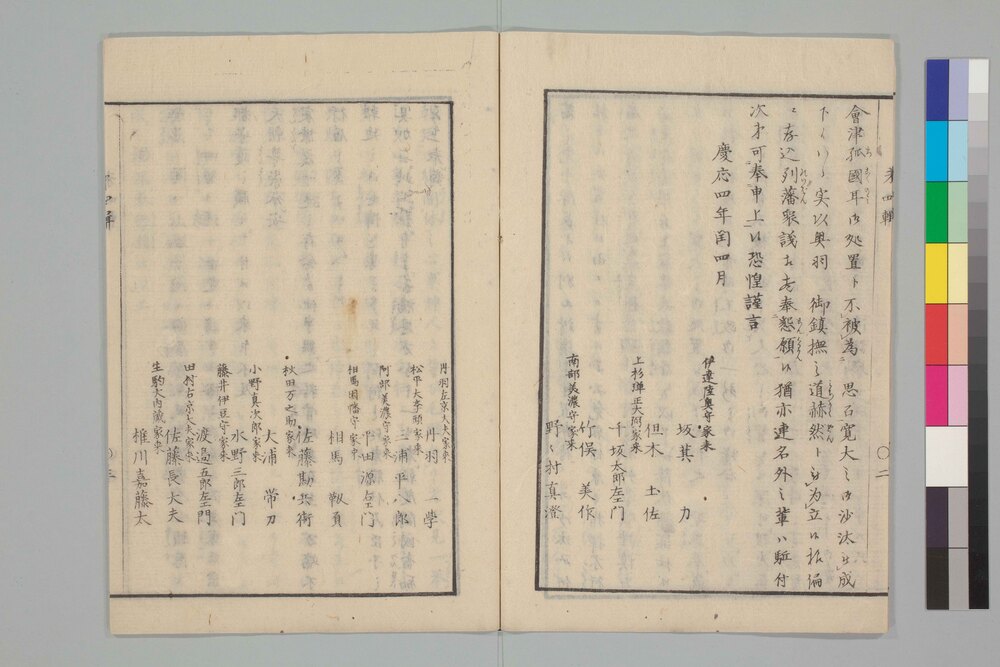 會津孤國耳御処置ト不被為 思召寛大之御沙汰被成
下候ハヽ実以奥羽 御鎮撫之道赫然ト被為立候
存込列藩衆議 奉懇願候猶亦連名外之輩ハ駈付
次第可奉申上候恐惶謹言
慶応四年閏四月
伊達陸奥守家来
坂其 力
但木 土佐
上杉弾正大弼家来
千坂太郎左エ門
竹俣 美作
南部美濃守家来
野々村真澄
丹羽左京大夫家来
丹羽 一学
松平大学頭家来
三浦平八郎
阿部美濃守家来
平田源左エ門
相馬因幡守家来
相馬 靱負
秋田万之助家来
佐藤勘兵衛
大浦 帯刀
小野真次郎家来
水野三郎左エ門
藤井伊豆守家来
渡邉五郎左エ門
田村右京大夫家来
佐藤長大夫
生駒大内蔵家来
椎川嘉藤太
第四輯
〇二
〇三